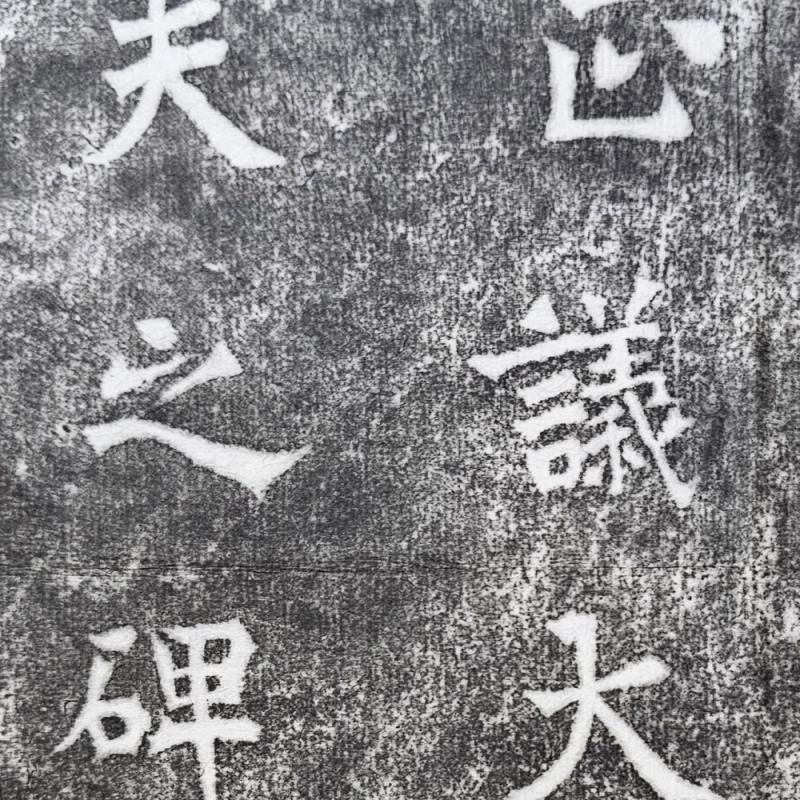 議大
夫之碑